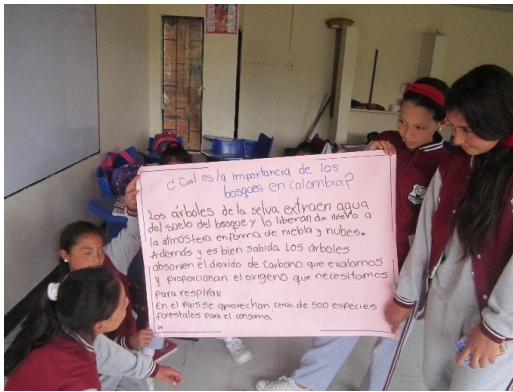 ¿Cual es la importancia de los
bosques en colombia?
Los árboles de la selva extraen agua
del suelo del bosque y lo liberan de nuevo a
la atmósfera en forma de niebla y nubes.
Además y es bien sabida Los árboles
absorven el dioxido de Carbono que exalamos
y proporcionan el oxigeno que necesitamos
para respirar
En el pais se aprovechan cerca de 500 especies
forestales para el consumo